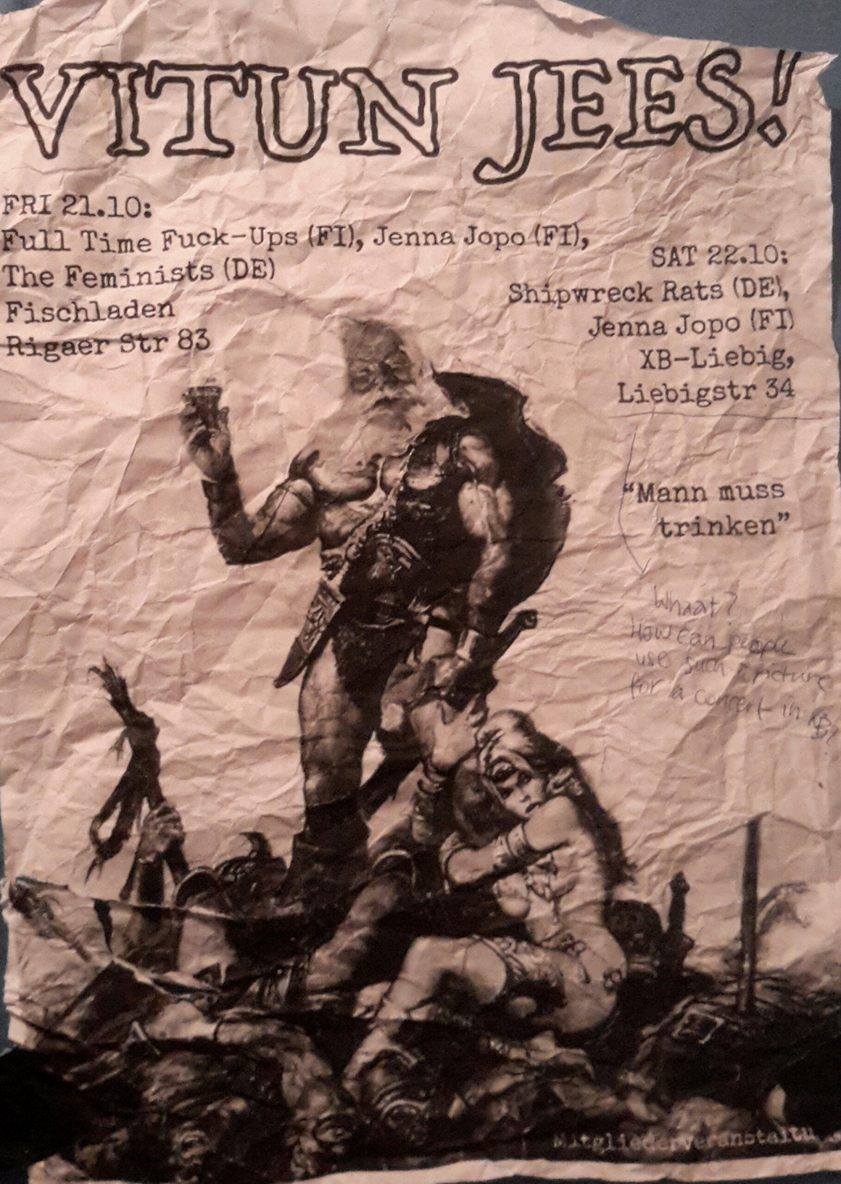 VITUN JEES!
FRI 21.10:
Full Time Fuck-Ups (FI), Jenna Jopo (FI),
The Feminists (DE)
Fischladen
Rigaer Str 83
SAT 22.10:
Shipwreck Rats (DE),
Jenna Jopo (FI)
XB-Liebig,
Liebigstr 34
"Mann muss
trinken"
Whaat?
How can people
use such a picture
for a concert in XB
Mitgliederveranstaltu